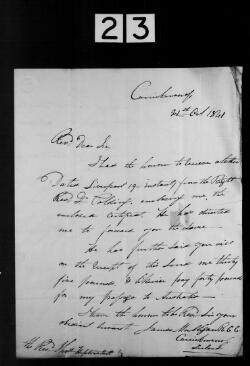 23
24th Oct 1841
Revd Dear Sir
I had the honor to receive a letter
Dated Liverpool 19 instant from the Right
Revd Dr Folding, enclosing me, the
enclosed certificate. He has directed
me to forward you the above
He has further said you will
on the receipt of this send me thirty
five pounds & likewise pay forty pounds
for my passage to Australia
I have the honor to be Revd Sir your
obedient servant James
Ireland
the Revd